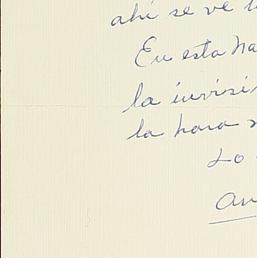 ahí se ve l
En esta na
la invisi
la hora
Lo
an